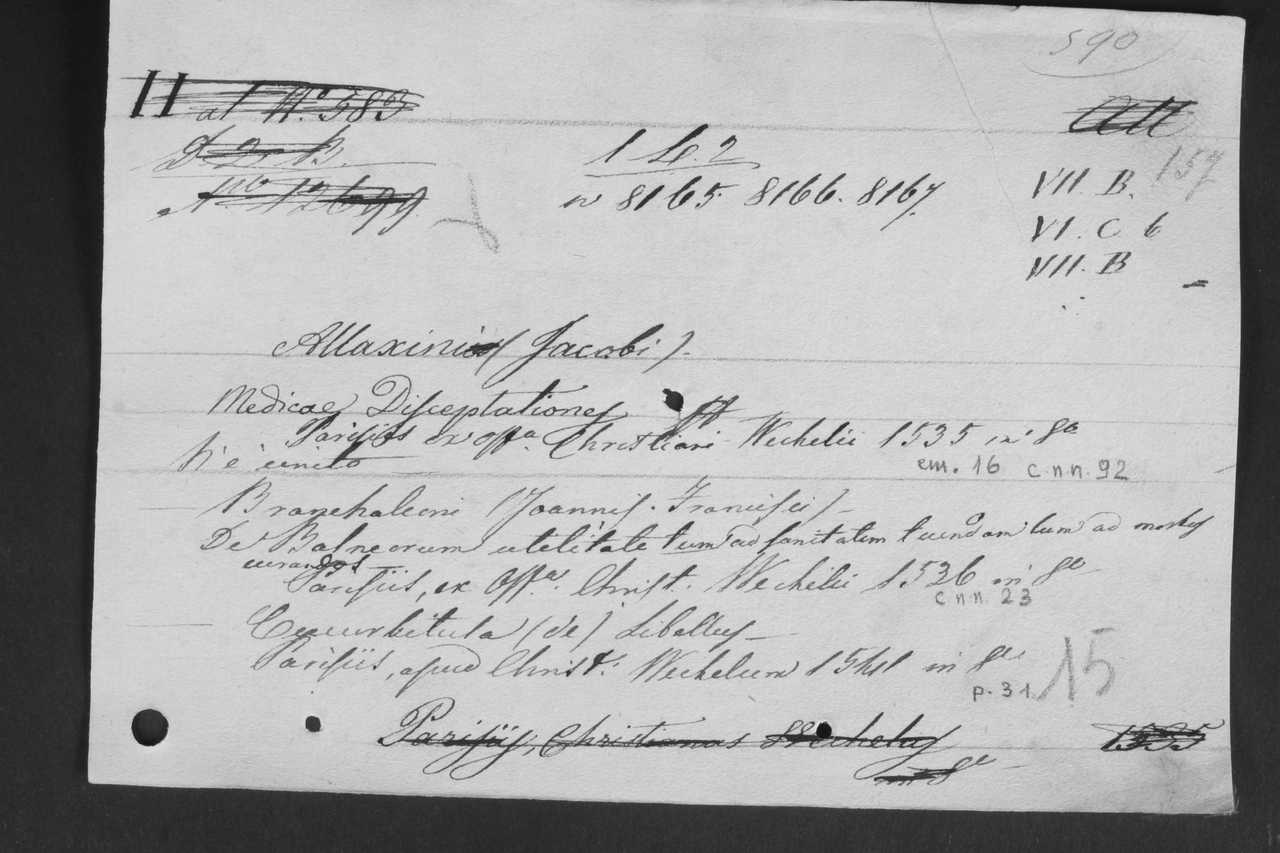 590
H al N.º 583
All
D. 2. B.
1 Lo. 2
VII. B. 157
Nº 12699.
nº 8165. 8166. 8167.
VI. C 6
VII. B
Allaxini (Jacobi).
Medicae Disceptationes
Parisiis ex offª. Christiani Wechelii 1535 in 8º
N' è unito
em. 16 c.n.n. 92
Branchaleoni (Joannis. Francisci)
De Balneorum utilitate tum ad sanitatem tuendam tum ad morbos
curandos
Parisiis, ex Offª. Christ. Wechelii 1536 in 8º
c n n. 23
Cucurbitula (de) Libellus
Parisiis, apud Christ. Wechelum 1541 in 8º
p. 31. 15
Parisijs, Christianus Wechelus 1535
in 8º